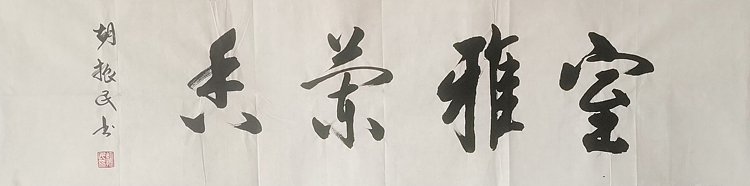 室雅兰香
胡振民书